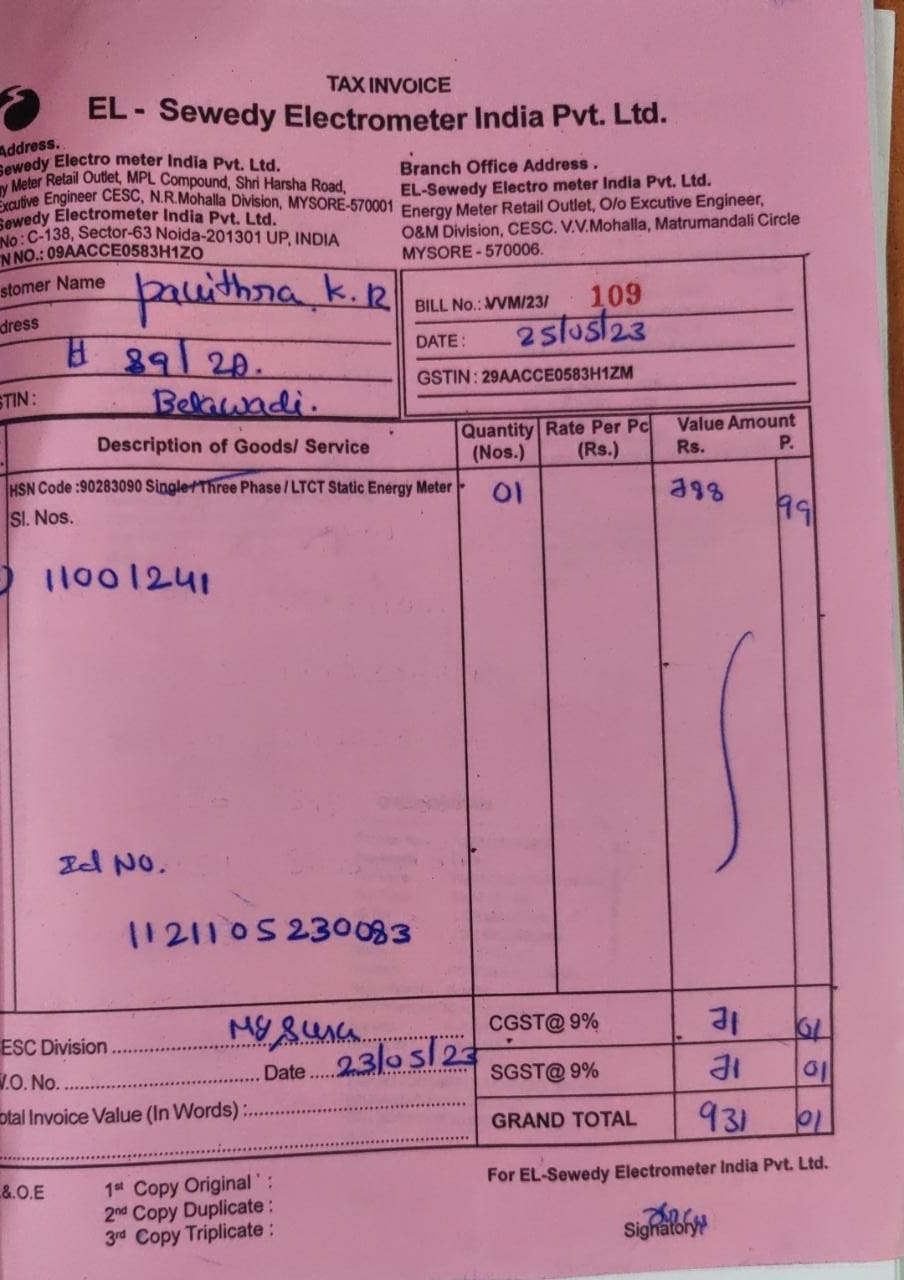 TAX INVOICE
EL - Sewedy Electrometer India Pvt. Ltd.
Address.
Sewedy Electro meter India Pvt. Ltd.
gy Meter Retail Outlet, MPL Compound, Shri Harsha Road,
Excutive Engineer CESC, N.R.Mohalla Division, MYSORE-570001
Sewedy Electrometer India Pvt. Ltd.
No : C-138, Sector-63 Noida-201301 UP, INDIA
N NO.: 09AACCE0583H1ZO
Branch Office Address .
EL-Sewedy Electro meter India Pvt. Ltd.
Energy Meter Retail Outlet, O/o Excutive Engineer,
O&M Division, CESC. V.V.Mohalla, Matrumandali Circle
MYSORE - 570006.
stomer Name Pavithra K.R
dress
# 89/2A.
STIN : Belawadi.
BILL No.: VVM/23/ 109
DATE : 25/05/23
GSTIN : 29AACCE0583H1ZM
Description of Goods/ Service Quantity (Nos.) Rate Per Pc (Rs.) Value Amount Rs. P.
HSN Code :90283090 Single / Three Phase / LTCT Static Energy Meter 01 788 99
Sl. Nos.
) 11001241
Id No.
1121105230083
ESC Division Mysuru
V.O. No. Date 23/05/23
otal Invoice Value (In Words) :
CGST@ 9% 71 01
SGST@ 9% 71 01
GRAND TOTAL 931 01
&.O.E
1st Copy Original :
2nd Copy Duplicate :
3rd Copy Triplicate :
For EL-Sewedy Electrometer India Pvt. Ltd.
Signatory